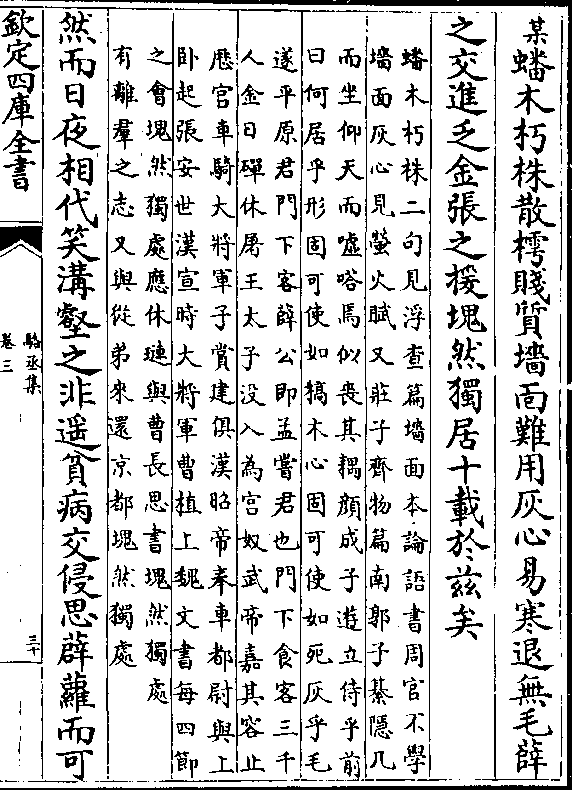 某蟠木朽株散樗賤質墻面難用灰心易寒退無毛薛
之交進乏金張之援塊然獨居十載於兹矣
蟠木朽株二句見浮查篇墻面本論語書周官不學
墻面灰心見螢火賦又莊子齊物篇南郭子綦隱几
而坐仰天而噓嗒焉似喪其耦顔成子遊立侍乎前
曰何居乎形固可使如槁木心固可使如死灰乎毛
遂平原君門下客薛公即孟嘗君也門下食客三千
人金日磾休屠王太子没入為宫奴武帝嘉其容止
厯官車騎大將軍子賞建俱漢昭帝奉車都尉與上
卧起張安世漢宣時大將軍曹植上魏文書每四節
之會塊然獨處應休璉與曹長思書塊然獨處
有離羣之志又與從弟來還京都塊然獨處
然而日夜相代笑溝壑之非遥貧病交侵思薜蘿而可
欽定四庫全書
駱丞集
卷三
三十